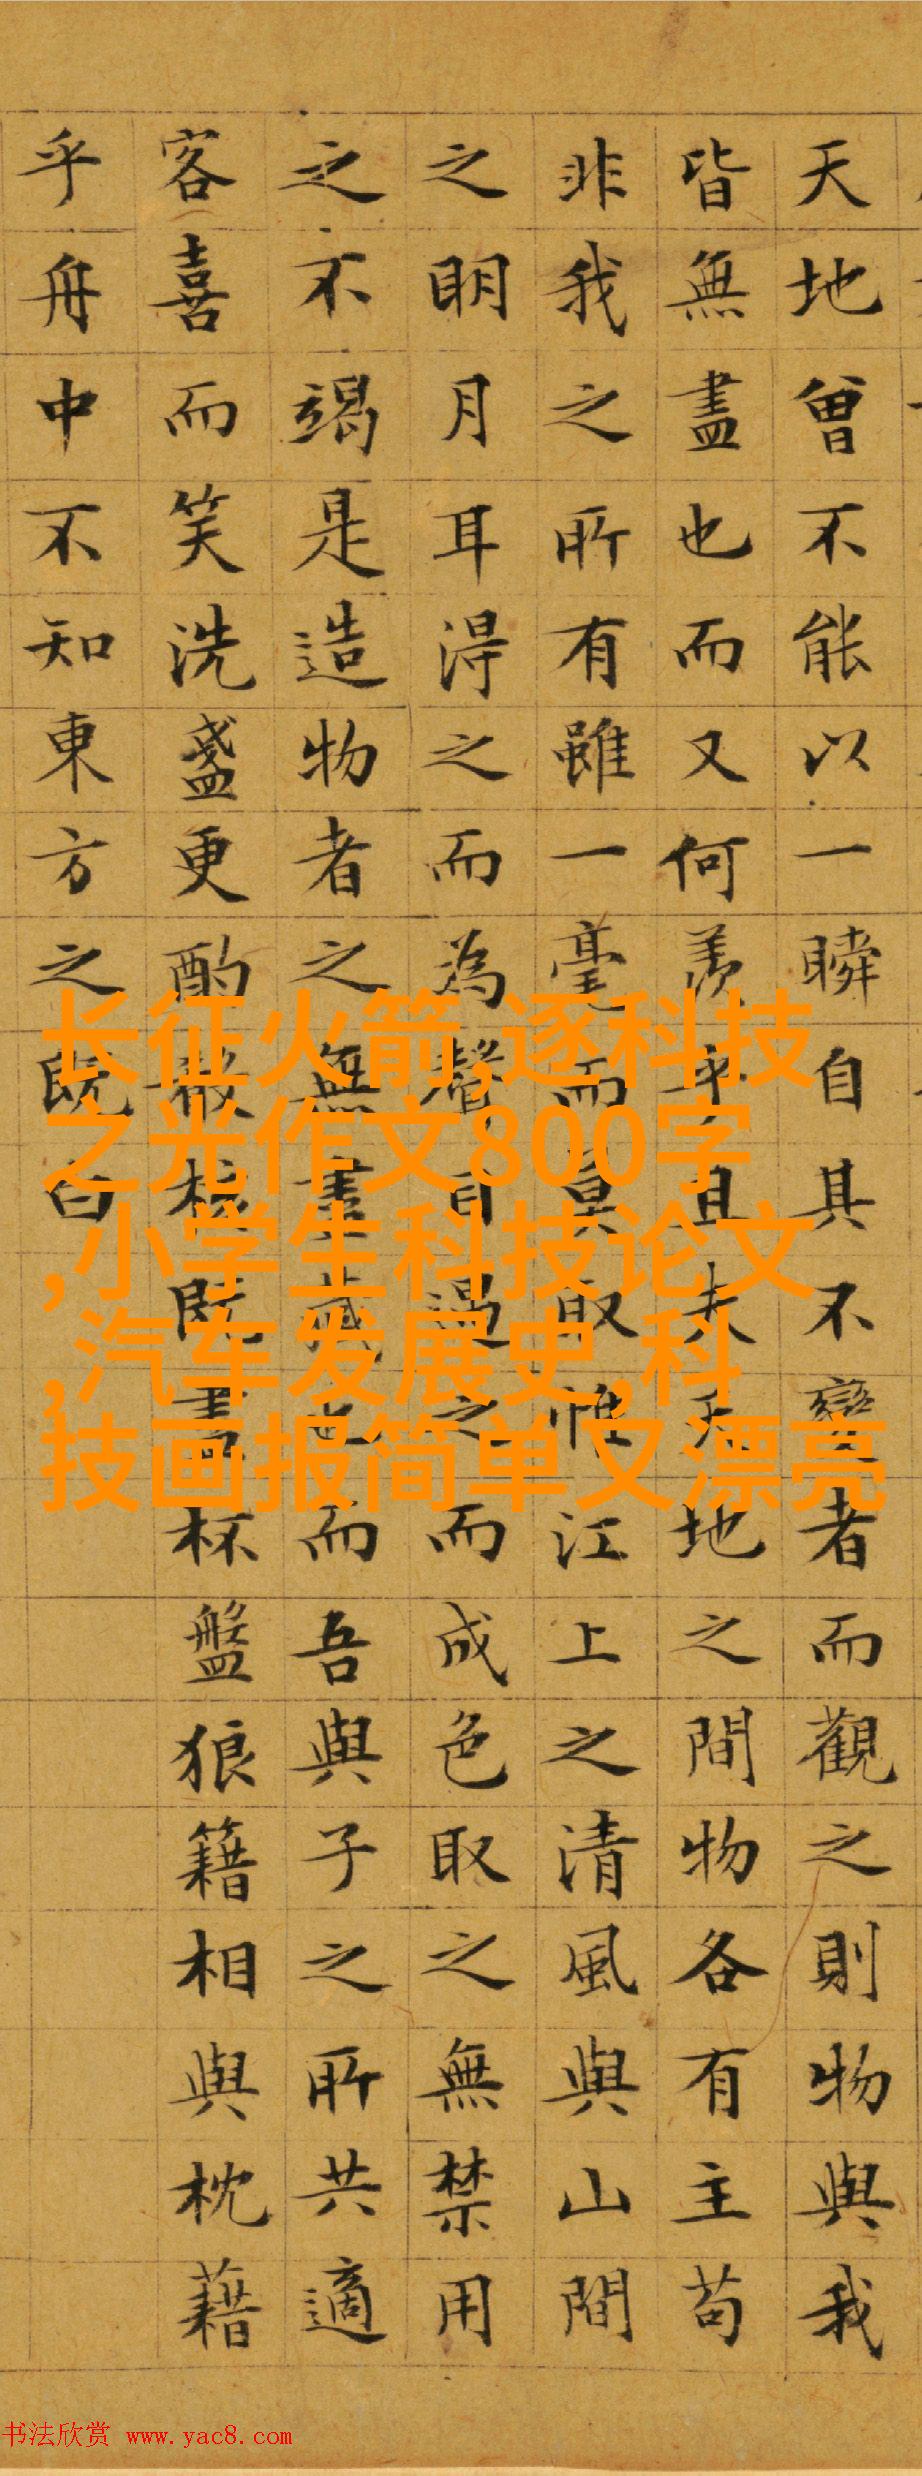 天地曾不能以一瞬自其不變者而觀之則物與我
皆無盡也而又何羨乎且夫天地之間物各有主苟
非我之所有雖一毫而莫取惟江上之清風與山間
之明月耳得之而為聲目遇之而成色取之無禁用
之不竭是造物者之無盡藏也而吾與子之所共適
客喜而笑洗盞更酌肴核既盡杯盤狼籍相與枕藉
乎舟中不知東方之既白
长征火箭,逐科技
之光作文800字
,小学生科技论文
,汽车发展史,科
技画报简单又漂亮
书法欣赏 www.yac8.com